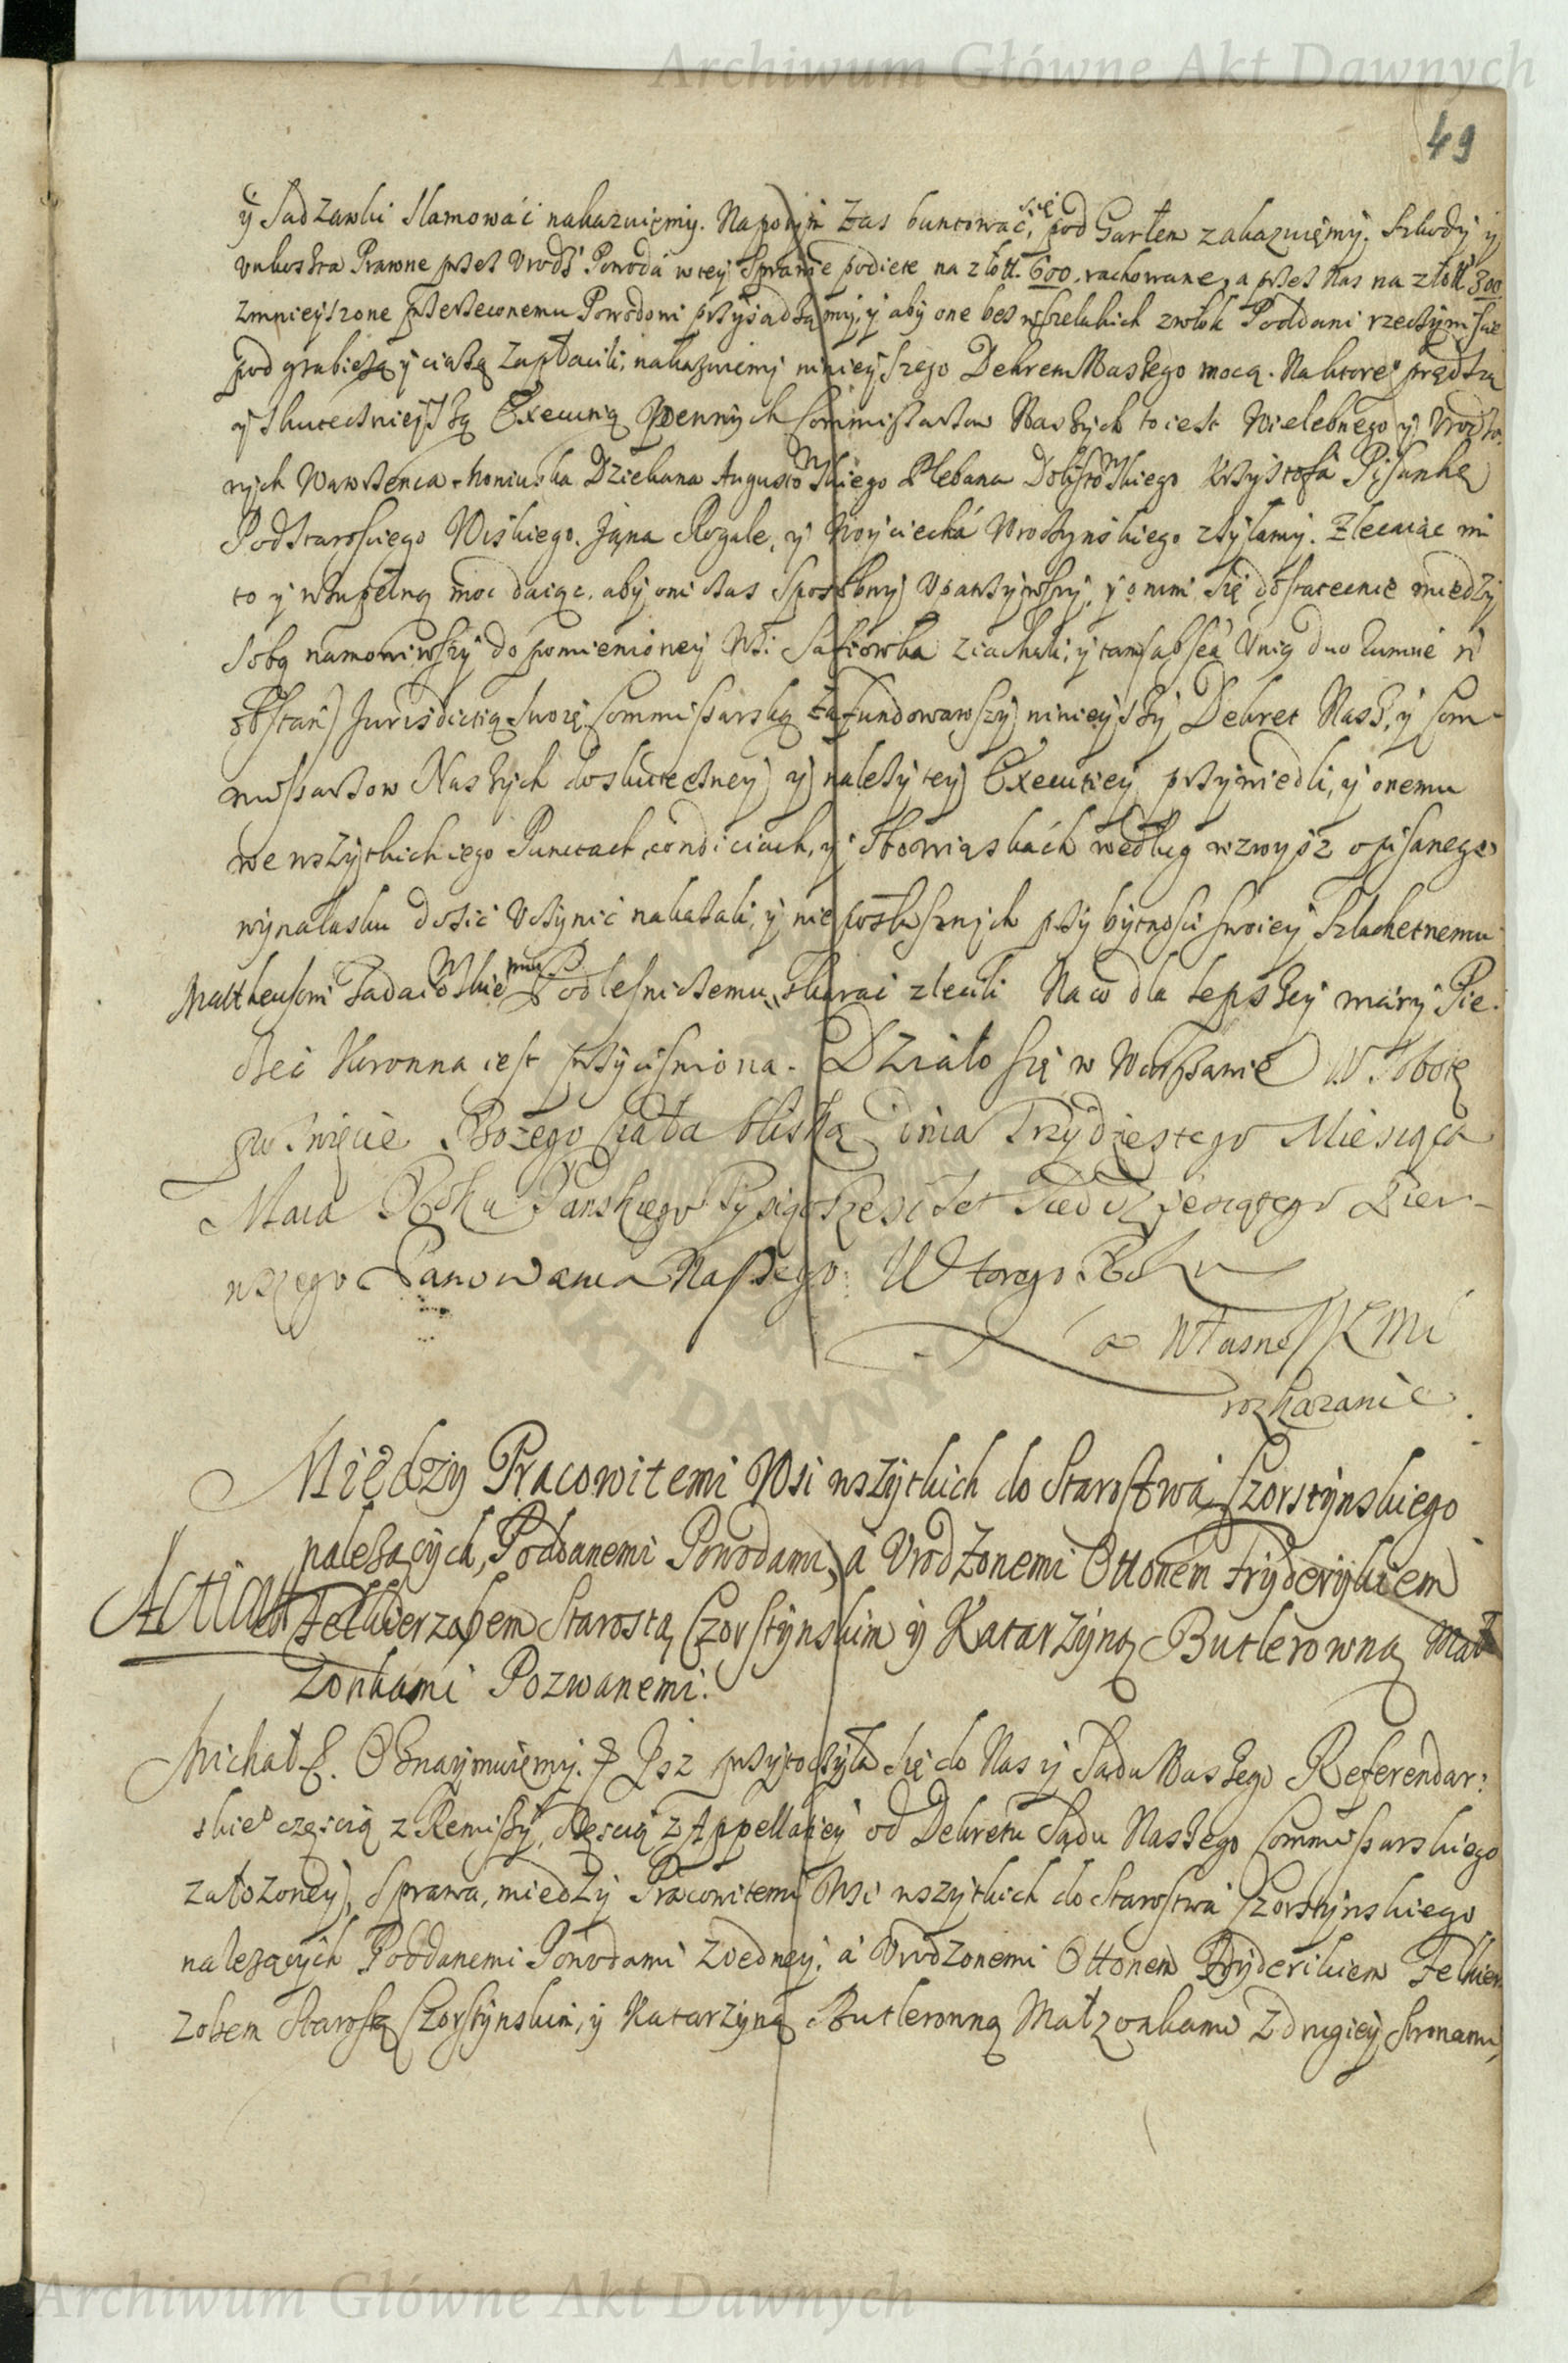 Archiwum Główne Akt Dawnych
49
ÿ Sadzawki slamowáć nakazuięmy. Napotym zas buntowáć się pod Garłem zakazuięmy. Szkody y
Unkoszta Prawne przez Urodz. Powodá w tey Sprawie podięte na złott. 600. rachowane, a przez Nas na złott. 300
zmnieyszone przerzeconemu Powodowi przysądzamy, y aby one bez wszelakich zwłok Poddani rzeczoni
pod grabieżą y ciążą zapłacili, nakazuiemy ninieyszego Dekretu Naszego mocą. Na ktoreo prędszą
y skutecznieyszą Execucią pewnych Commissarzow Naszych to iest Wielebnego y Urodzo
nych Wawrzenca Moniuska Dziekana Augustowskiego Plebana Dolistowskiego Krzysztofa Pisankę
Podstarosciego Wiskiego. Jana Rogale, y Woyciechá Wrotzynskiego zsyłamy. Zlecaiąc im
to y w zupełną moc daiąc, aby oni czas sposobny upatrzywszy, y o nim się dostatecznie między
sobą namowiwszy do pomienioney Wsi ziachali, y tam absentia unius duorumue non
obstante Jurisdictią swoię Commissarską zafundowawszy ninieyszy Dekret Nasz, y Com-
missarzow Naszych do skuteczney y należytey Executiey przywiedli, y onemu
we wszytkich iego Punctach, condiciach, y obowiąskách według wzwysz opisanego
wynalasku dosić uczynić nakazali, y nieposłusznych przy bytnosci swoiey Szlachetnemu
Mattheuszowi Podlesniczemu, skarać zlecili Na co dla lepszey wiáry Pie-
częć Koronna iest przyciśniona. Działo się w Warszawie W Sobotę
po Swięcie Bożego Ciała bliską dnia Trzydziestego Miesiąca
Maia Roku Panskiego Tysiąc Szesćset Siedmdziesiątego Pier-
wszego Panowania Naszego Wtorego Roku
a Własne JKMci
rozkazanie.
Między Pracowitemi Wsi wszytkich do Starostwá Czorstynskiego
należących, Poddanemi Powodami, á Urodzonemi Ottonem Fryderykiem
Actia Felkierzabem Starostą Czorstynskim y Katarzyną Butlerowną Mał
żonkami Pozwanemi.
Michał etc. Oznaymuięmy. Jsz przytoczyła się do Nas y Sądu Naszego Referendar:
skieo częscią z Remissy, częscią z Appellaciey od Dekretu Sądu Naszego Commissarskiego
założoney, Sprawa, między Pracowitemi Wsi wszytkich do Starostwá Czorstynskiego
należących Poddanemi Powodami z iedney, á Urodzonemi Ottonem Fryderikiem Felkier
zobem Starostą Czorstynskim, y Katarzyną Butlerowną Małzonkami z drugiey stronami,
Archiwum Główne Akt Dawnych